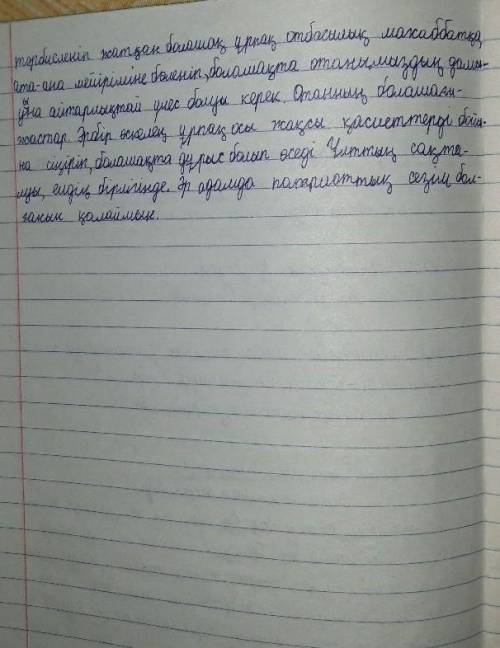 тәрбисленіп жатқан болашақ ұрпақ отбасылық махаббатқа
ата-ана мейіріміне бөленіп, болашақта отанымыздың дамы-
уына айтарлықтай үлес болуы керек. Отанның болашағы-
жастар. Әрбір өскелең ұрпақ осы жақсы қасиеттерді бойы-
на сіңіріп, болашақта дұрыс болып өседі Ұлттың сақта-
луы, елдің бірлігінде. Әр адамда патриоттық сезім бол-
ғанын қалаймын.